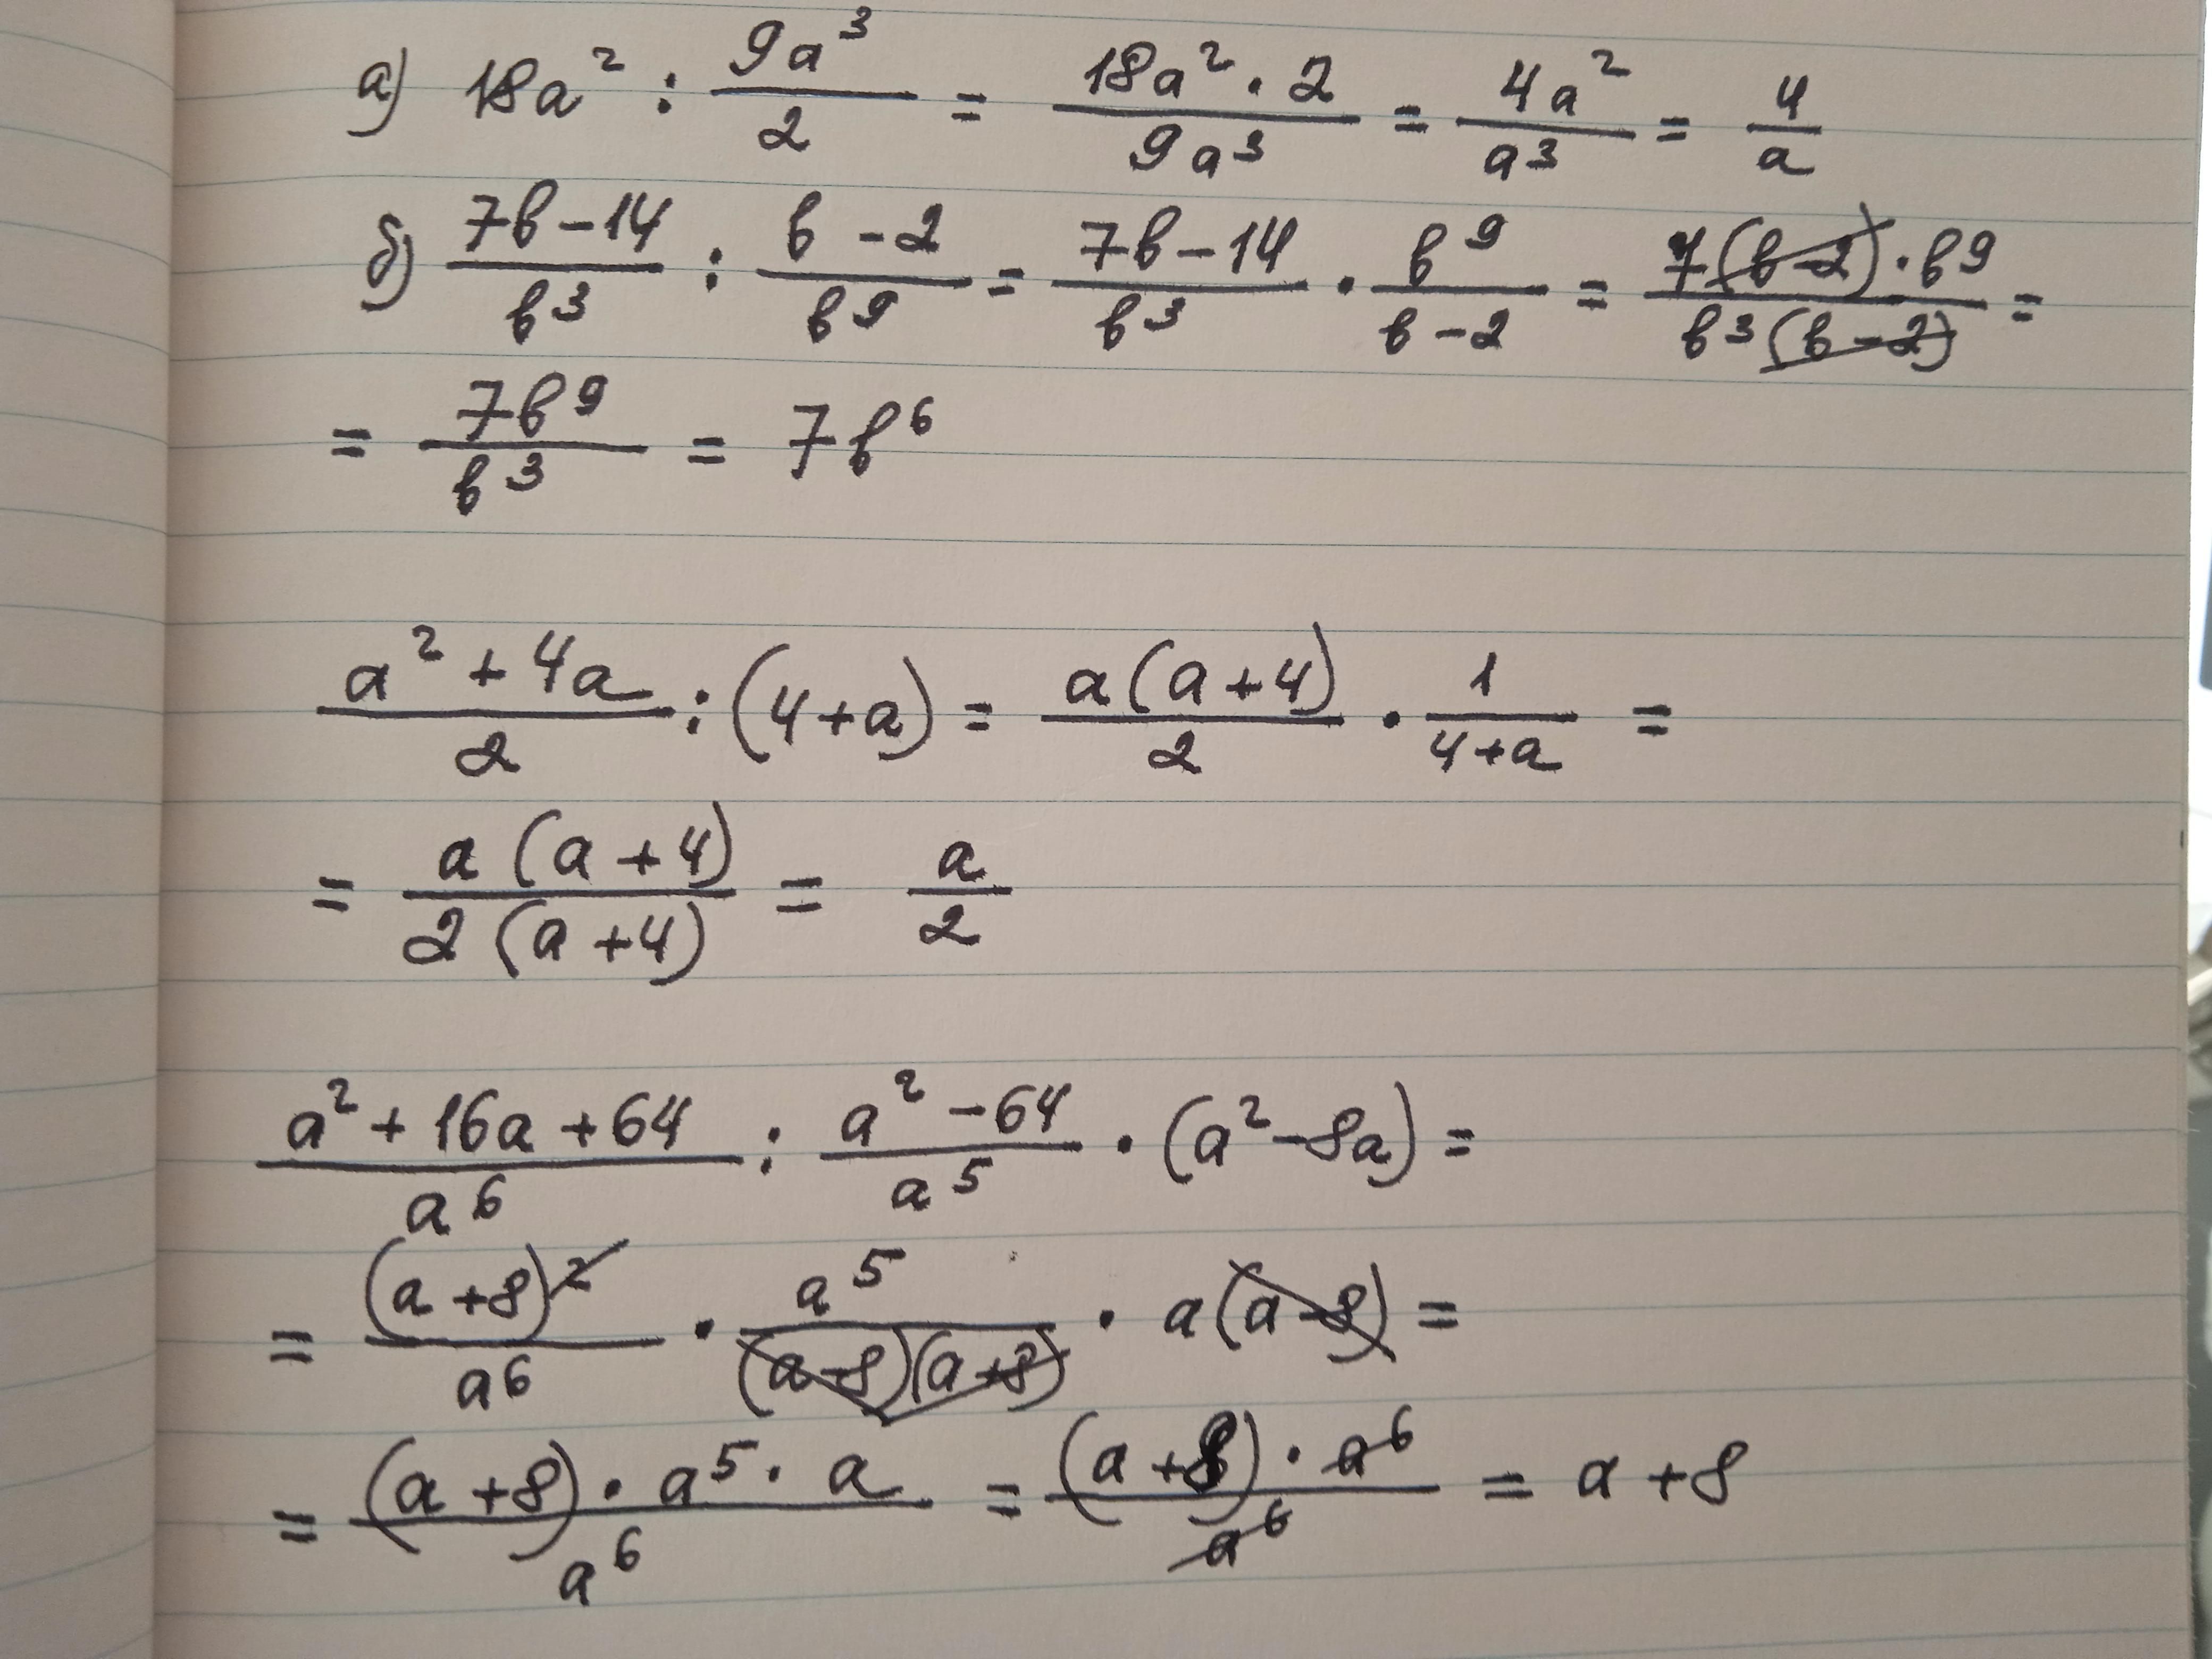 а) 18a² : 9a³/2 = (18a² · 2)/(9a³) = 4a²/a³ = 4/a
б) (7b - 14)/b³ : (b - 2)/b⁹ = (7b - 14)/b³ · b⁹/(b - 2) = (7(b - 2) · b⁹)/(b³(b - 2)) =
= 7b⁹/b³ = 7b⁶
(a² + 4a)/2 : (4 + a) = a(a + 4)/2 · 1/(4 + a) =
= a(a + 4)/(2(a + 4)) = a/2
(a² + 16a + 64)/a⁶ : (a² - 64)/a⁵ · (a² - 8a) =
= (a + 8)²/a⁶ · a⁵/((a - 8)(a + 8)) · a(a - 8) =
= ((a + 8) · a⁵ · a)/a⁶ = ((a + 8) · a⁶)/a⁶ = a + 8